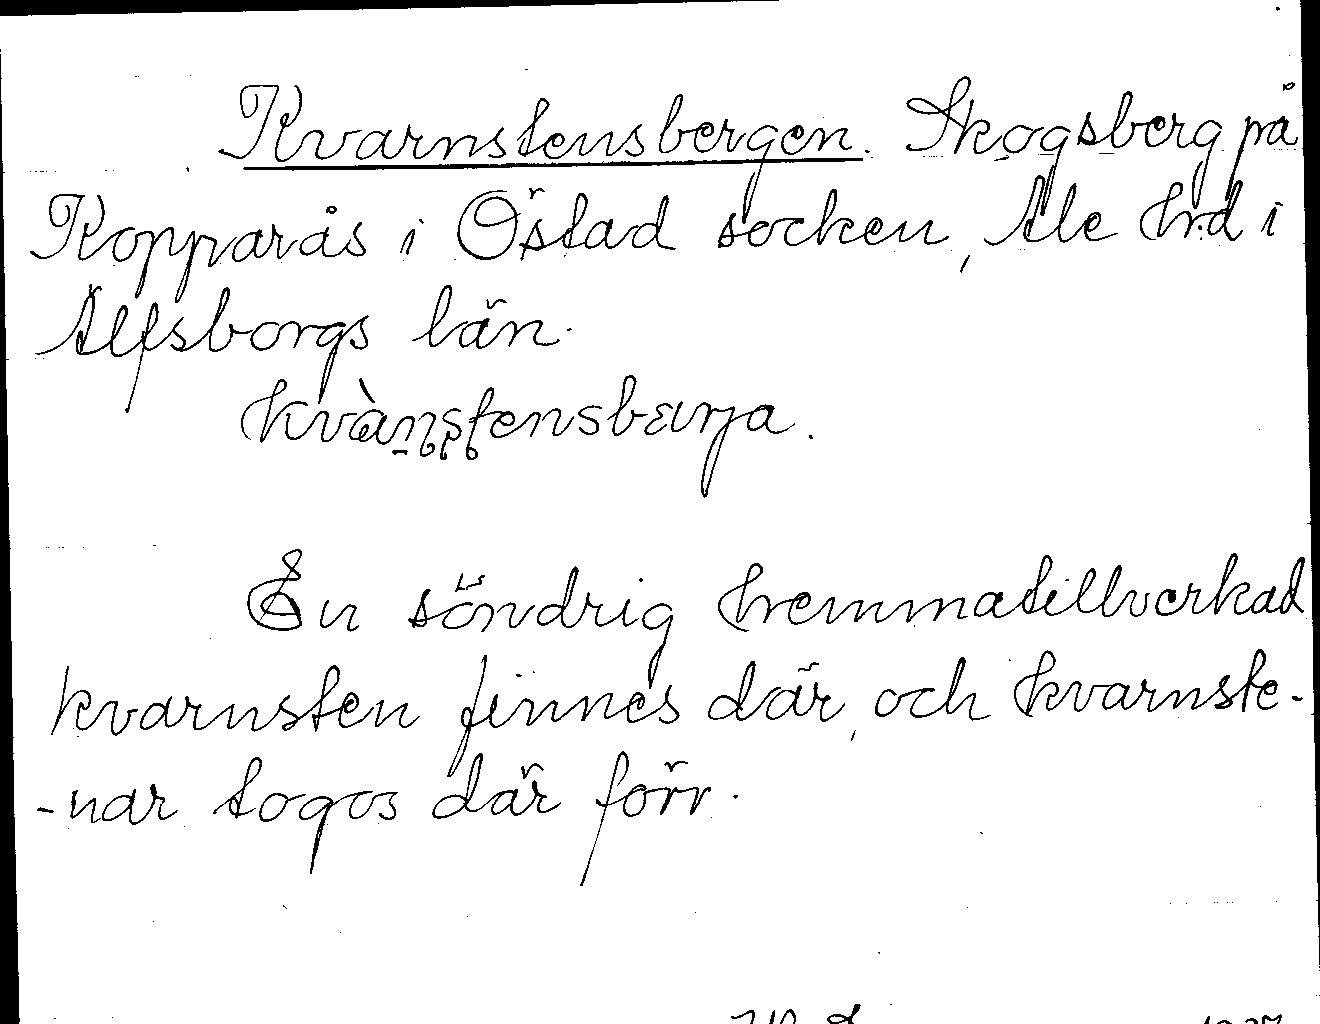 Kvarnstensbergen. Skogsberg på
Kopparås i Östad socken, Ale hrd i
Älfsborgs län.
kvànstensbærja.
En söndrig hemmatillverkad
kvarnsten finnes där, och kvarnste-
-nar togos där förr.